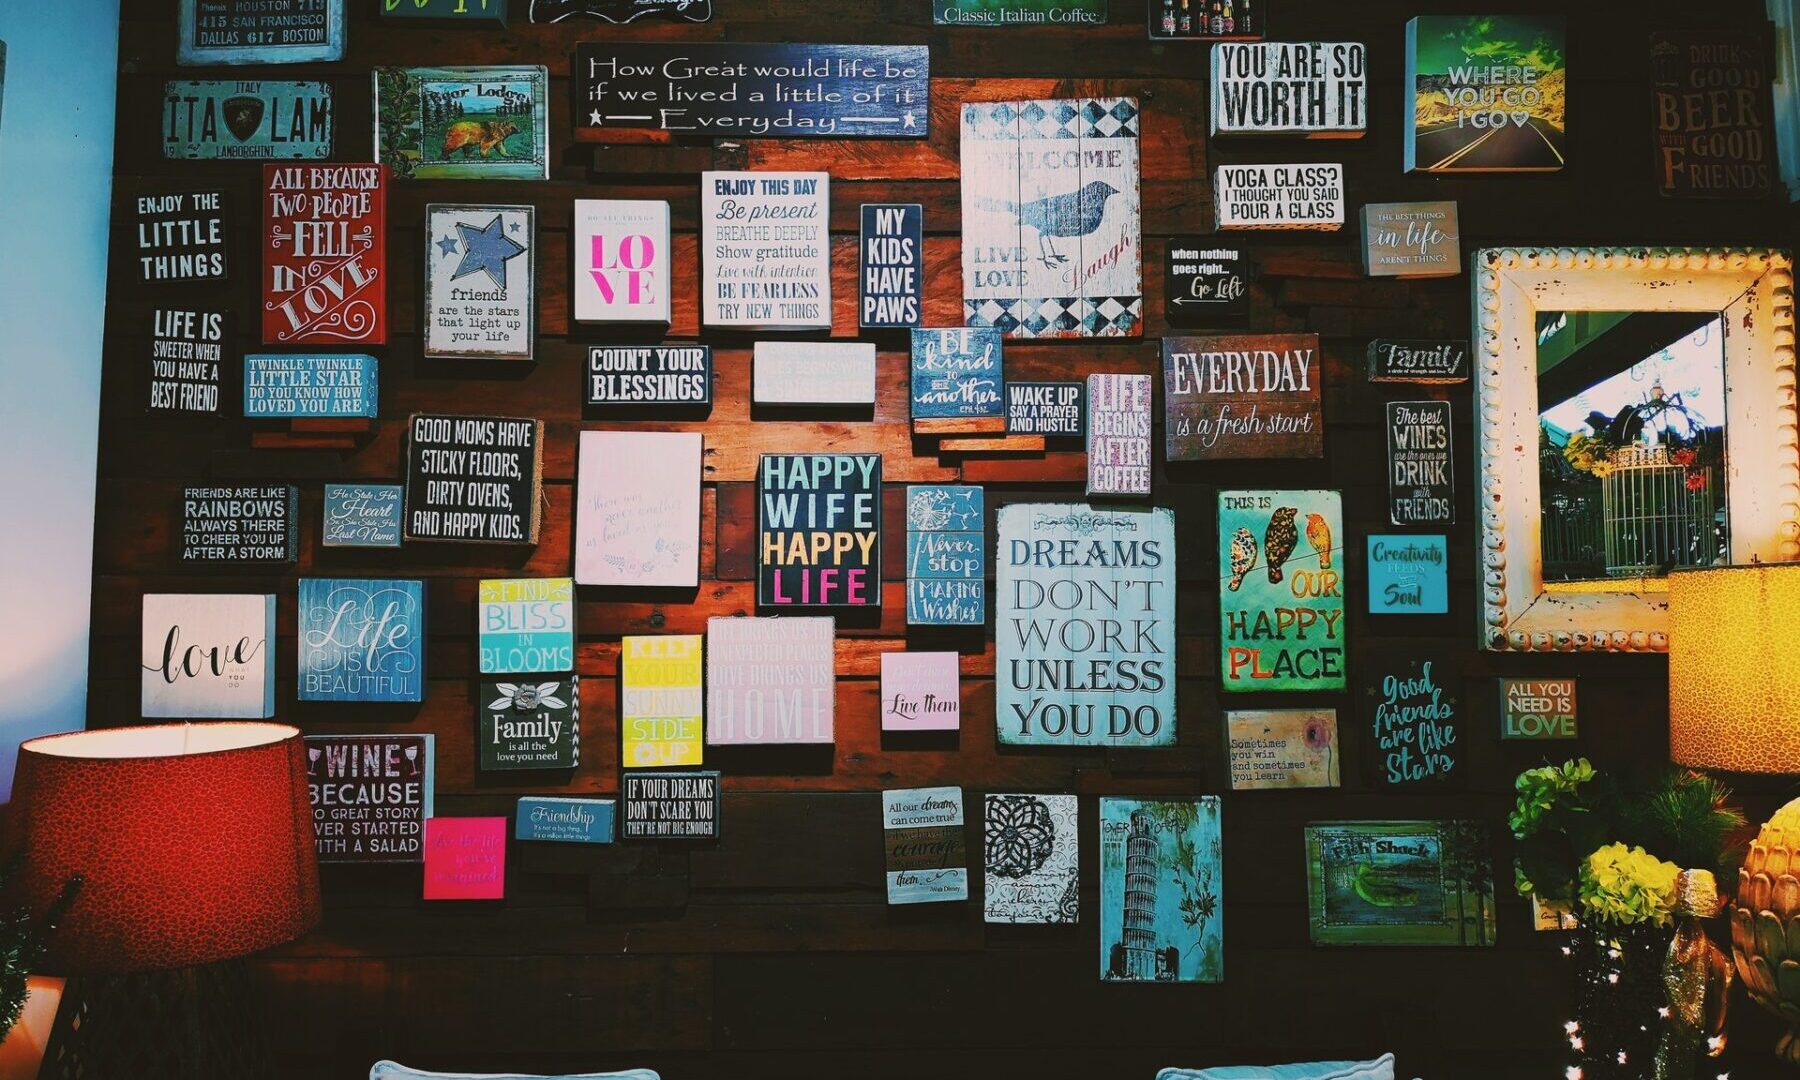 HOUSTON 713
415 SAN FRANCISCO
DALLAS 617 BOSTON
DO IT
Classic Italian Coffee
ITALY
ITA LAM
19 LAMBORGHINI 63
How Great would life be
if we lived a little of it
Everyday
YOU ARE SO
WORTH IT
WHERE
YOU GO
I GO
DRINK
GOOD
BEER
WITH GOOD
FRIENDS
ENJOY THE
LITTLE
THINGS
ALL BECAUSE
TWO PEOPLE
FELL
IN
LOVE
friends
are the stars
that light up
your life
DO ALL THINGS
LO
VE
ENJOY THIS DAY
Be present
BREATHE DEEPLY
Show gratitude
Live with intention
BE FEARLESS
TRY NEW THINGS
MY
KIDS
HAVE
PAWS
WELCOME
LIVE
LOVE
Laugh
YOGA CLASS?
I THOUGHT YOU SAID
POUR A GLASS
when nothing
goes right...
Go Left
THE BEST THINGS
in life
AREN'T THINGS
LIFE IS
SWEETER WHEN
YOU HAVE A
BEST FRIEND
TWINKLE TWINKLE
LITTLE STAR
DO YOU KNOW HOW
LOVED YOU ARE
COUNT YOUR
BLESSINGS
BE
kind
TO
ONE
another
EPH. 4:32
WAKE UP
SAY A PRAYER
AND HUSTLE
LIFE
BEGINS
AFTER
COFFEE
EVERYDAY
is a fresh start
Family
a circle of strength and love
The best
WINES
are the ones we
DRINK
with
FRIENDS
GOOD MOMS HAVE
STICKY FLOORS,
DIRTY OVENS,
AND HAPPY KIDS.
FRIENDS ARE LIKE
RAINBOWS
ALWAYS THERE
TO CHEER YOU UP
AFTER A STORM
He Stole Her
Heart
So She Stole His
Last Name
HAPPY
WIFE
HAPPY
LIFE
Never
stop
MAKING
Wishes
DREAMS
DON'T
WORK
UNLESS
YOU DO
THIS IS
OUR
HAPPY
PLACE
Creativity
FEEDS
Soul
love
WHAT
YOU
DO
Life
IS
BEAUTIFUL
FIND
BLISS
IN
BLOOMS
Family
is all the
love you need
KEEP
YOUR
SUNNY
SIDE
UP
LIFE BRINGS US TO
UNEXPECTED PLACES
LOVE BRINGS US
HOME
Live them
Sometimes
you win
and sometimes
you learn
good
friends
are like
Stars
ALL YOU
NEED IS
LOVE
WINE
BECAUSE
NO GREAT STORY
EVER STARTED
WITH A SALAD
Friendship
It's not a big thing,
it's a million little things
IF YOUR DREAMS
DON'T SCARE YOU
THEY'RE NOT BIG ENOUGH
All our dreams
can come true
if we have the
courage
them.
-Walt Disney
Fish Shack